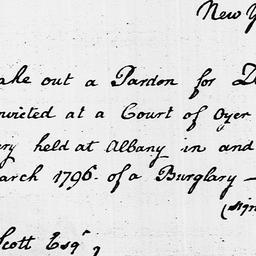 New Y
ake out a Pardon for D
nvicted at a Court of Oyer
ery held at Albany in and
arch 1796. of a Burglary —
(sign
Scott Esqr